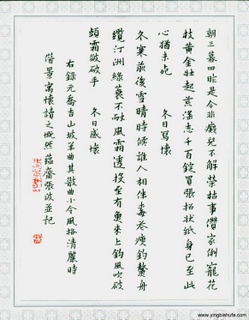 朝三暮四昨是今非癡兒不解榮枯事儹家俬寵花
枝黄金壯起荒滛志千百錠買張招狀紙身已至此
心猶未死 冬日寫懷
冬寒前後雪晴時候誰人相伴梅花瘦釣鰲舟
纜汀洲綠蓑不耐風霜透投至有魚来上鈎風吹破
頭霜皴破手 冬日感懷
右録元喬吉山坡羊曲其散曲小令風格清麗時
營景寓懷讀之慨然 齋張波並記
www.yingbishufa.com